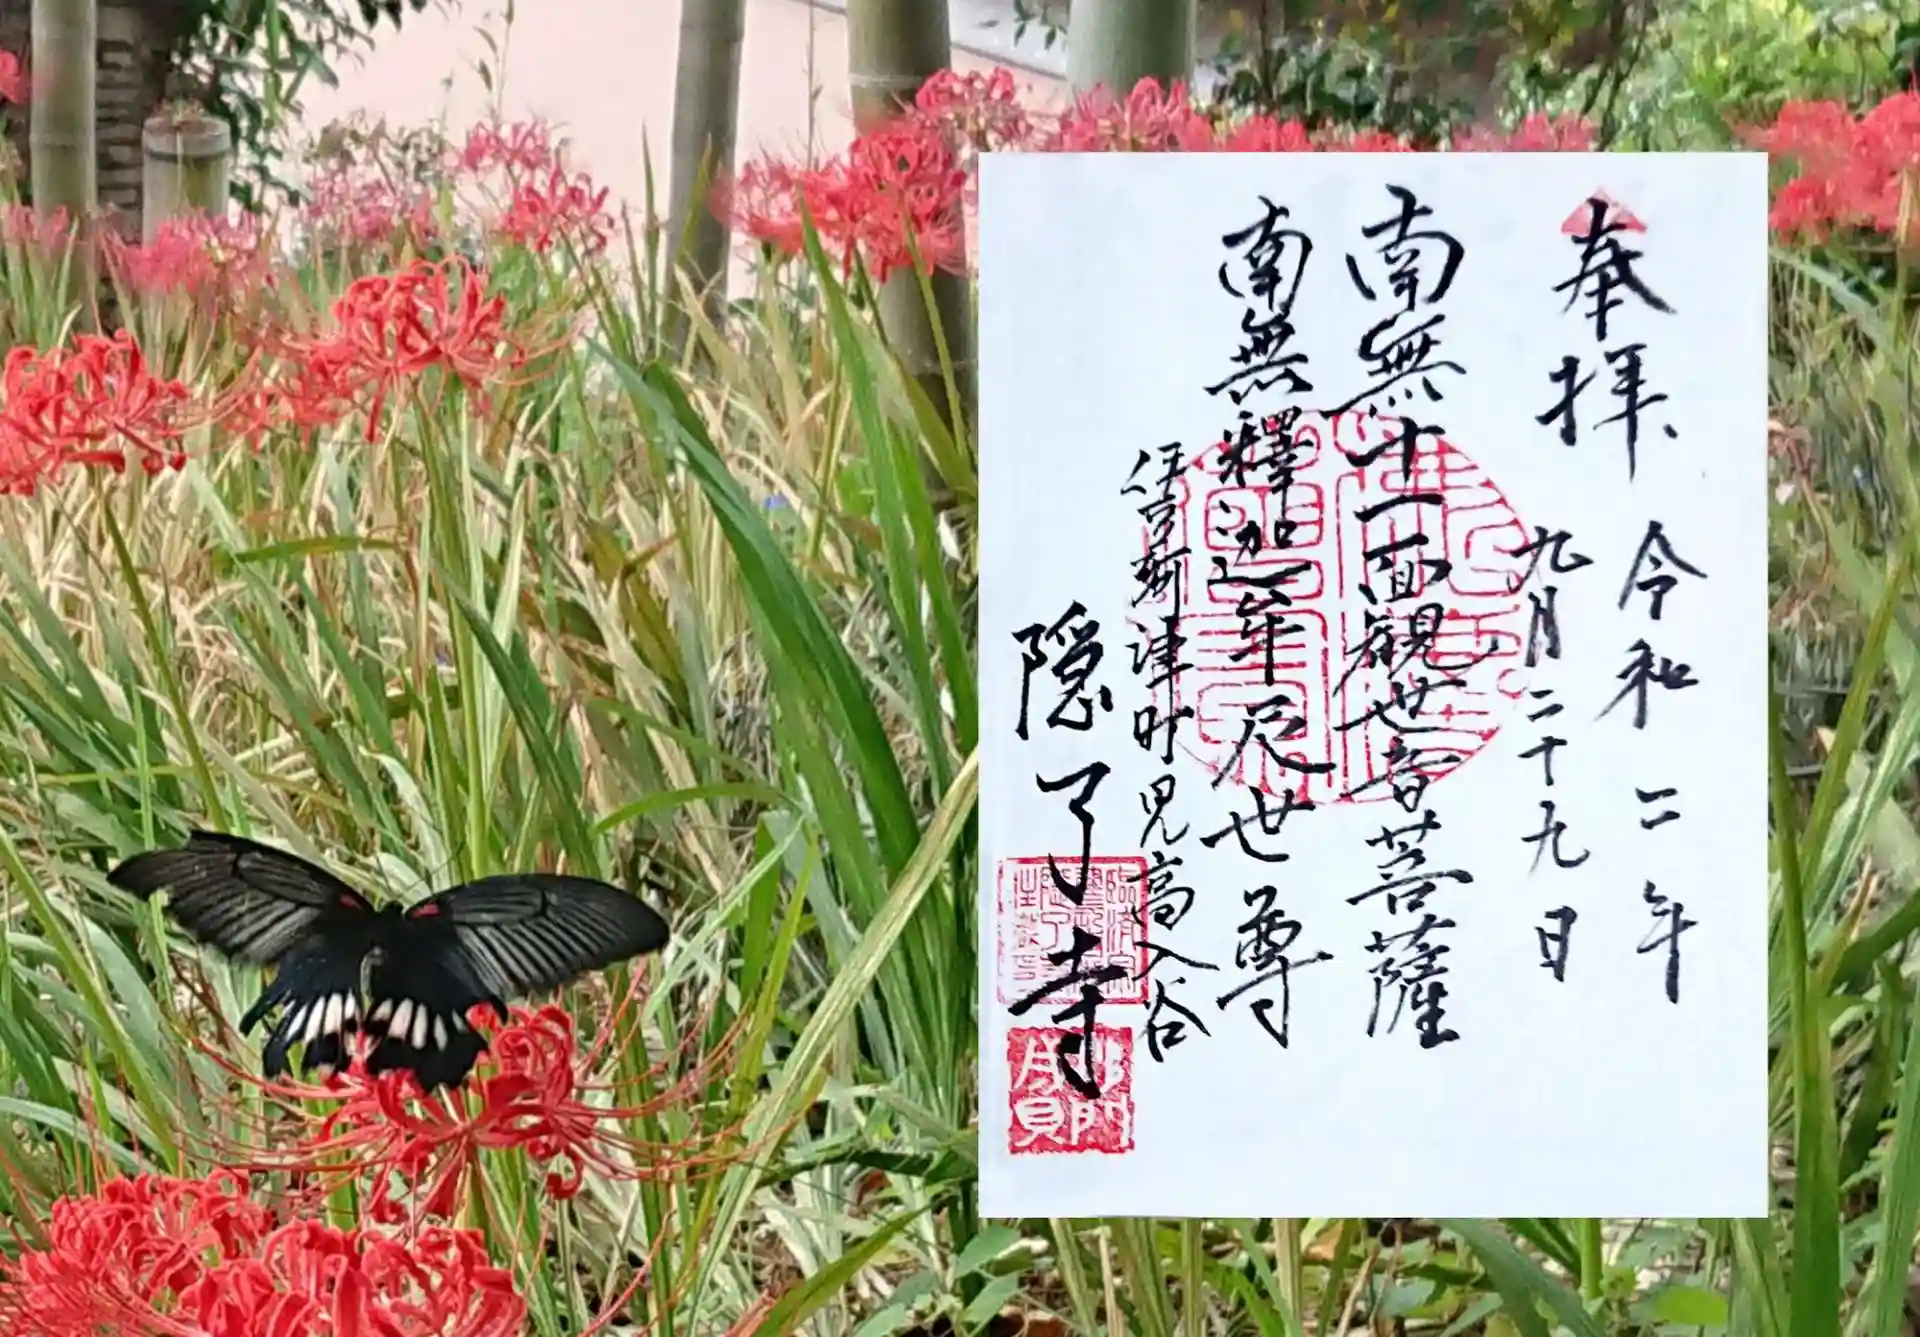 奉拝
令和二年
九月二十九日
南無十一面観世音菩薩
南無釋迦牟尼世尊
津时見高入谷
隠了寺